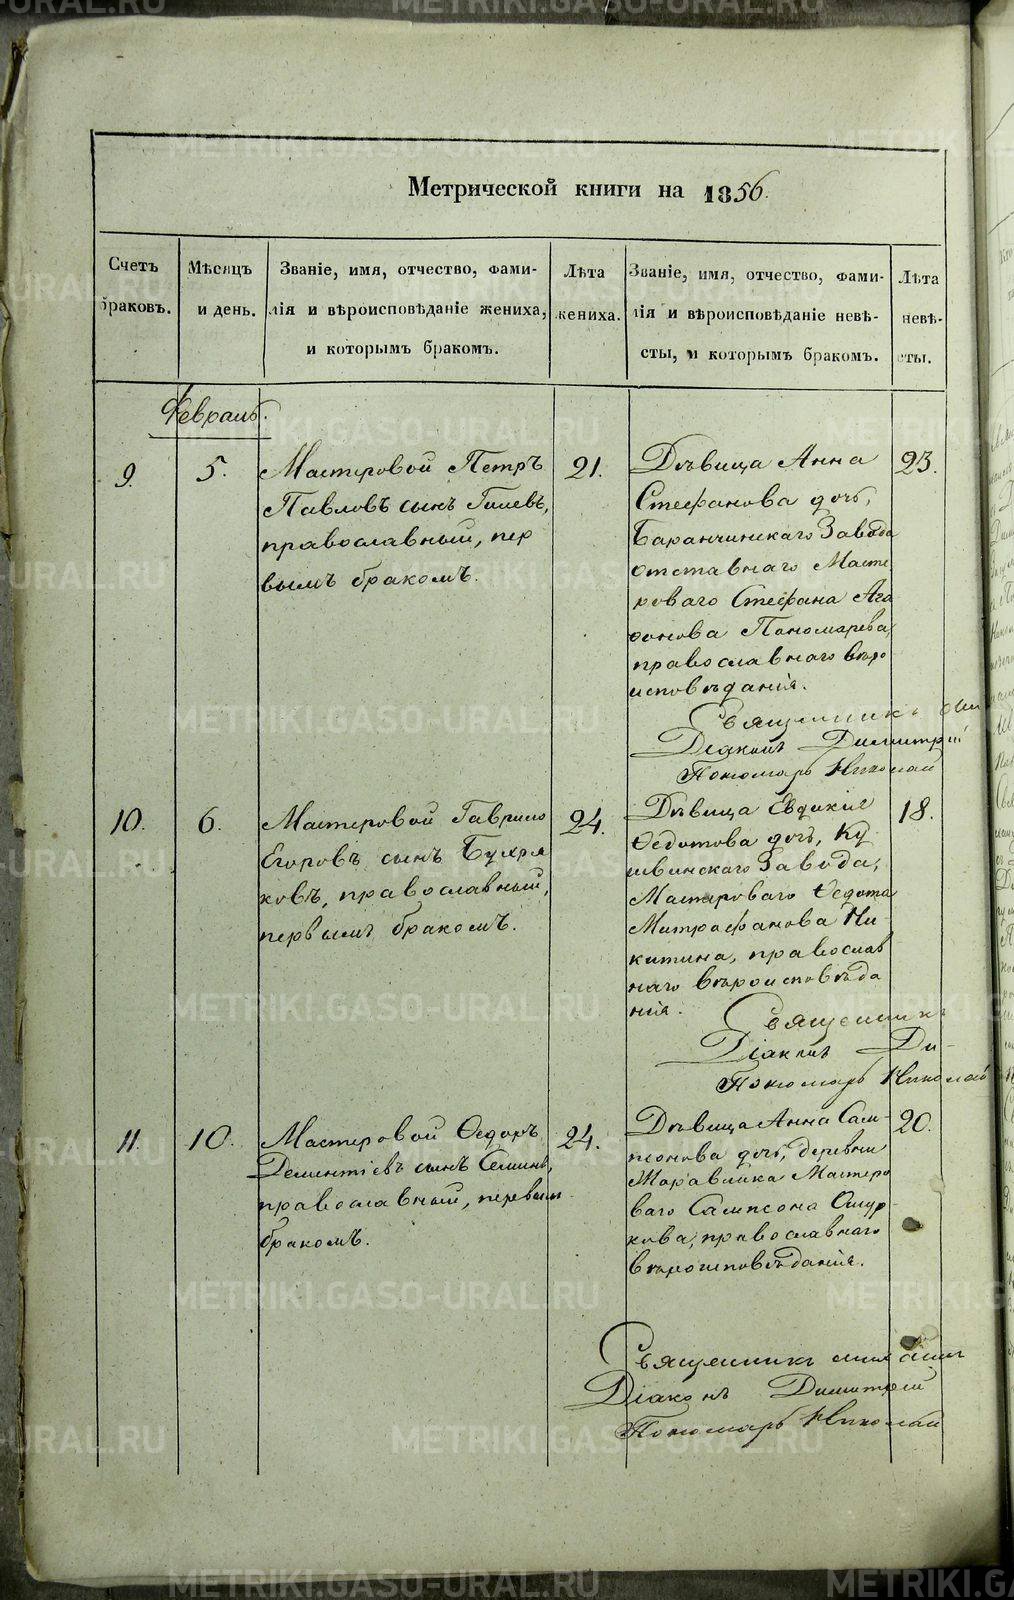 Метрической книги на 1856.
Счетъ браковъ.
Мѣсяцъ и день.
Званіе, имя, отчество, фами-
лія и вѣроисповѣданіе жениха,
и которымъ бракомъ.
Лѣта
жениха.
Званіе, имя, отчество, фами-
лія и вѣроисповѣданіе невѣ-
сты, и которымъ бракомъ.
Лѣта
невѣ-
сты.
Февраль.
9.
5.
Мастеровой Петръ
Павловъ сынъ Гилевъ,
православный, пер
вымъ бракомъ.
21.
Дѣвица Анна
Стефанова дочь,
Баранчинскаго Завода
отставнаго Масте
роваго Стефана Ага
фонова Пономарева,
православнаго вѣро
исповѣданія.
23.
Священникъ
Діаконъ Димитрій
Пономарь Николай
10.
6.
Мастеровой Гаврило
Егоровъ сынъ Бухря
ковъ, православный,
первымъ бракомъ.
24.
Дѣвица Евдокія
Ѳедотова дочь, Ку
швинскаго Завода,
Мастероваго Ѳедота
Митрофанова Ни-
китина, православ
наго вѣроисповѣда
нія.
18.
Священникъ
Діаконъ Ди-
Пономарь Николай
11.
10.
Мастеровой Ѳедоръ
Дементіевъ сынъ Семинъ,
православный, первымъ
бракомъ.
24.
Дѣвица Анна Сам-
псонова дочь, деревни
Мастеро
ваго Сампсона Ошур
кова, православнаго
вѣроисповѣданія.
20.
Священникъ
Діаконъ Димитрій
Пономарь Николай
METRIKI.GASO-URAL.RU